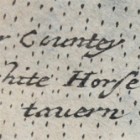 County
White Horse
tavern